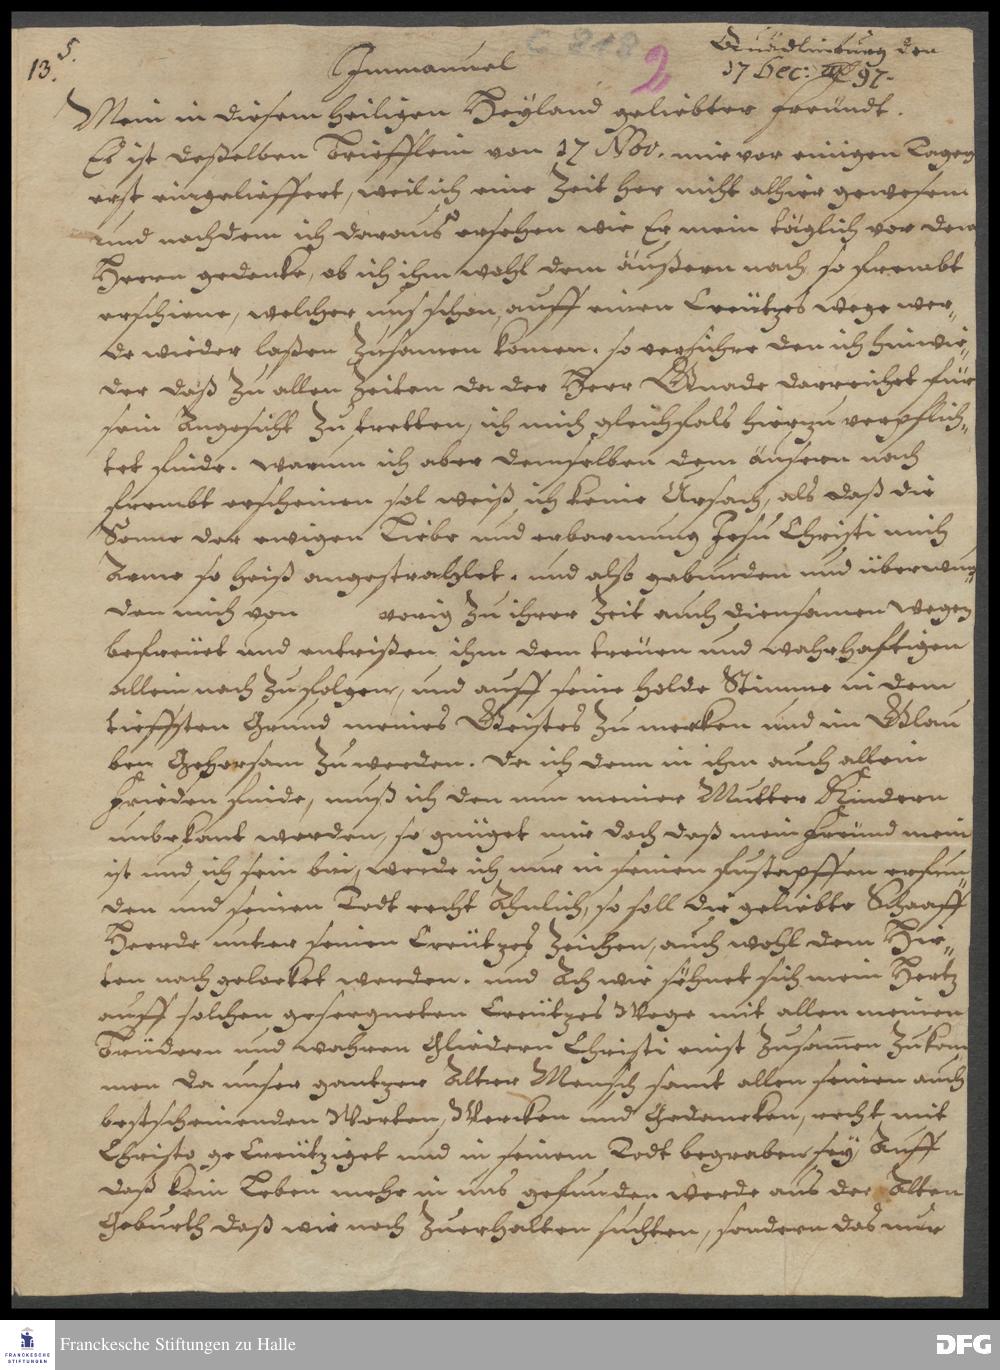 13. 5.
C 818
2
Quädlinburg den
17 Dec: 97.
Immanuel
Mein in diesem heiligen Heyland geliebter freündt.
Es ist deßelben briefflein von 17 Nov. mir vor einigen Tagen
erst eingelieffert, weil ich eine Zeit her nicht alhier gewesen
und nachdem ich daraus ersehen wie Er mein täglich vor dem
Herrn gedenke, ob ich ihm wohl dem äußern nach so frembt
erschiene, welcher uns schon auff einen Creützes wege wer-
de wieder laßen Zusamen komen. so versichre den ich hinwie-
der daß Zu allen Zeiten da der Herr Gnade darreichet für
sein Angesicht Zu tretten, ich mich gleichfals hierzu verpflich-
tet finde. warum ich aber demselben dem äusern nach
frembt erscheinen sol weiß ich keine Ursach, als daß die
Sonne der ewigen Liebe und erbarmung Jesu Christi mich
Arme so heiß angestrahlet. und also gebunden und überwun-
den mich von vorig Zu ihrer Zeit auch diensamen wegen
befreüet und entrißen ihm dem treüen und wahrhafftigen
allein nach Zu folgen, und auff seine holde Stimme in dem
tieffsten Grund meines Geistes Zu merken und im Glau
ben Gehorsam Zu werden. Da ich denn in ihm auch allein
frieden finde, muß ich den nun meiner Mutter Kindern
unbekant werden, so gnüget mir doch daß mein freünd mein
ist und ich sein bin, werde ich nur in seinen fustapffen erfun-
den und seinen Todt recht Ähnlich, so soll die geliebte Schaaff
Heerde unter seinen Creützes Zeichen, auch wohl dem Hir-
ten nach gelocket werden. und Ach wie sehnet sich mein Hertz
auff solchen gesegneten Creützes Wege mit allen meinen
Brüdern und wahren Gliedern Christi einst Zusamen Zu kom
men da unser gantzer Alter Mensch samt allen seinen auch
bestscheinenden Worten, Wercken und Gedancken, recht mit
Christo geCreütziget und in seinem Todt begraben sey Auff
daß kein Leben mehr in uns gefunden werde aus der Alten
Geburth daß wir noch Zuerhalten suchten, sondern das nur
FRANCKESCHE STIFTUNGEN
Franckesche Stiftungen zu Halle
DFG